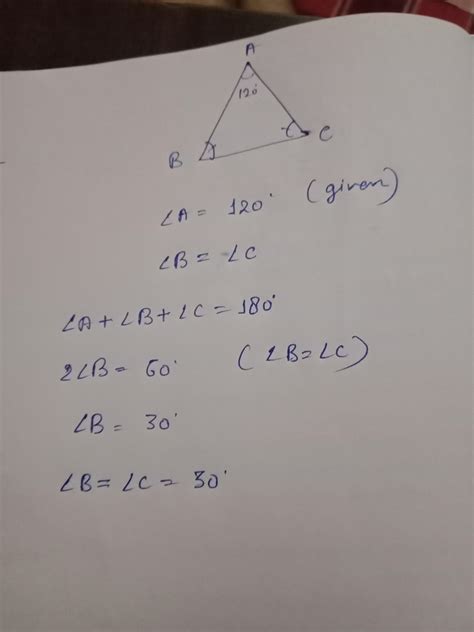 A
120°
B
C
∠A = 120° (given)
∠B = ∠C
∠A + ∠B + ∠C = 180°
2∠B = 60° (∠B = ∠C)
∠B = 30°
∠B = ∠C = 30°